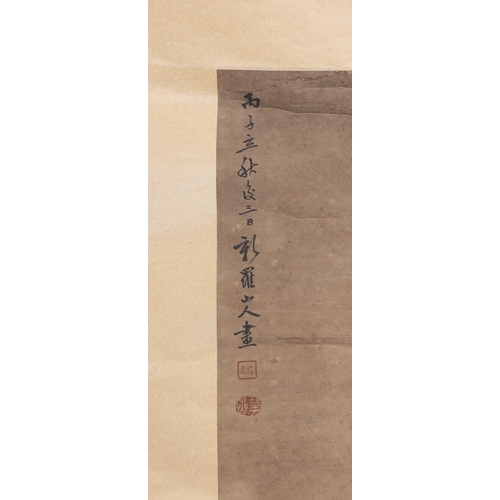 丙子立秋後三日新羅山人畫